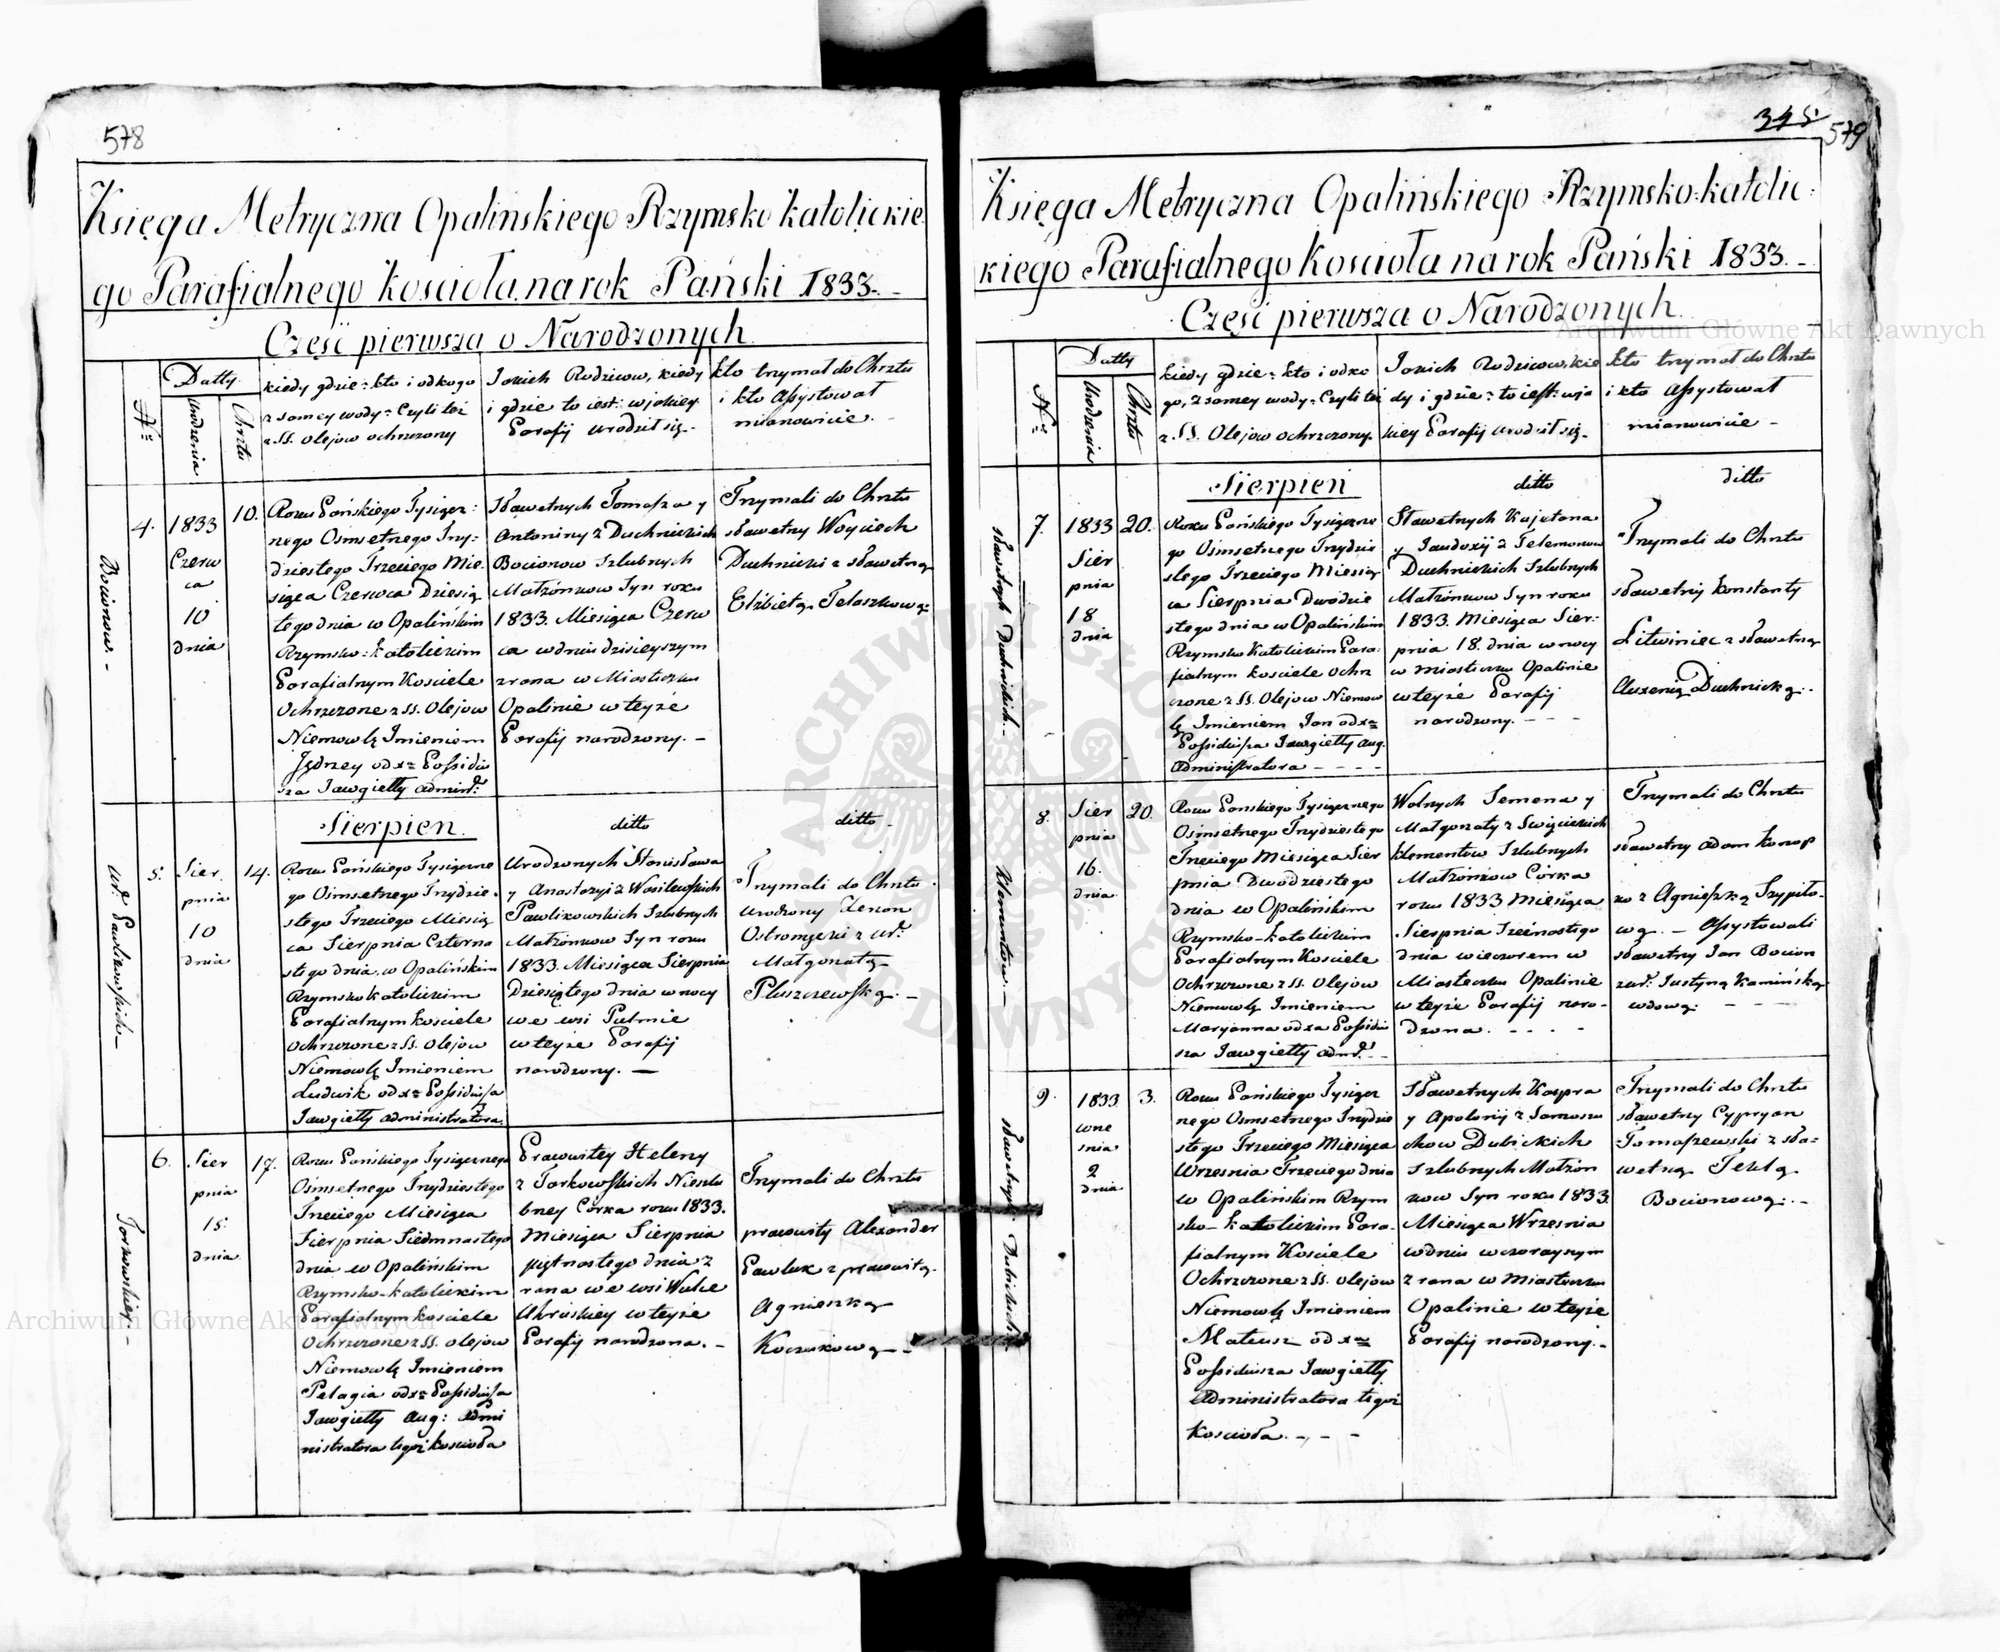 578
Księga Metryczna Opalińskiego Rzymsko katolickie
go Parafialnego Kościoła na rok Pański 1833.
Część pierwsza o Narodzonych
N=
Datty
Urodzenia
Chrztu
kiedy gdzie= kto i od kogo
z samey wody= Czyli też
z SS. Olejow ochrzczony
Z ktorych Rodzicow, kiedy
i gdzie to iest: w jakiey
Parafij urodził się.
kto trzymał do Chrztu
i kto Assystował
mianowicie.
Bocionow
4.
1833
Czerw
ca
10
dnia
10.
Roku Pańskiego Tysiącz=
nego Osmsetnego Trzy=
dziestego Trzeciego Mie
siąca Czerwca Dziesią
tego dnia w Opalińskim
Rzymsko=katolickim
Parafialnym Kosciele
Ochrzczone z SS. Olejow
Niemowlę Imieniem
Jędrzey od Xa Possidiu
sza Jawgiełły admind
Sławetnych Tomasza y
Antoniny z Duchnickich
Bocionow Szlubnych
Małżonkow Syn roku
1833. Miesiąca Czerw
ca w dniu dzisieyszym
z rana w Miasteczku
Opalinie w teyże
Parafij narodzony. —
Trzymali do Chrztu
sławetny Woyciech
Duchnicki z sławetną
Elżbietą Telaszkową
Ur. Pawlikowskich
5.
Sier
pnia
10
dnia
14.
Sierpień.
ditto
ditto
Roku Pańskiego Tysiączne
go Osmsetnego Trzydzie
stego Trzeciego Miesią
ca Sierpnia Czterna
stego dnia w Opalińskim
Rzymsko katolickim
Parafialnym kosciele
Ochrzczone z SS. Olejow
Niemowlę Imieniem
Ludwik od Xa Possidiusza
Jawgiełły administratora
Urodzonych Stanisława
y Anastazyi z Wasilewskich
Pawlikowskich Szlubnych
Małżonkow Syn roku
1833. Miesiąca Sierpnia
Dziesiątego dnia w nocy
we wsi Pulmie
w teyże Parafij
narodzony. —
Trzymali do Chrztu
Urodzony Zenon
Ostromęcki z Ur.
Małgorzatą
Pluszczewską. —
Torkowskiey
6.
Sier
pnia
15
dnia
17.
Roku Pańskiego Tysiącznego
Osmsetnego Trzydziestego
Trzeciego Miesiąca
Sierpnia Siedmnastego
dnia w Opalińskim
Rzymsko-katolickim
Parafialnym kosciele
Ochrzczone z SS. olejow
Niemowlę Imieniem
Pelagia od Xa Possidiusza
Jawgiełły Aug: Admi
nistratora tegoż kościoła
Prawowitey Heleny
z Torkowskich Nieszlu
bney Corka roku 1833.
Miesiąca Sierpnia
piętnastego dnia z
rana we wsi Wulce
Uhruskiey w teyże
Parafij narodzona. —
Trzymali do Chrztu
prawowity Alexander
Pawluk z prawowitą
Agnieszką
Koczukową
345
579
Księga Metryczna Opalińskiego Rzymsko=katolic=
kiego Parafialnego Kościoła na rok Pański 1833.
Część pierwsza o Narodzonych.
N=
Datty
Urodzenia
Chrztu
kiedy gdzie= kto i od ko
go, z samey wody= Czyli też
z SS. Olejow ochrzczony.
Z ktorych Rodzicow, kie
dy i gdzie= to iest: w ja
kiey Parafij urodził się.
kto trzymał do Chrztu
i kto Assystował
mianowicie
Sierpień
ditto
ditto
Sławetnych Duchnickich
7.
1833
Sier
pnia
18
dnia
20.
Roku Pańskiego Tysiączne
go Osmsetnego Trzydzie
stego Trzeciego Miesią
ca Sierpnia Dwudzie
stego dnia w Opalińskim
Rzymsko Katolickim Para
fialnym kosciele Ochrz
czone z SS. Olejow Niemow
lę Imieniem Jan od Xa
Possidiusza Jawgiełły Aug.
Administratora
Sławetnych Kajetana
y Jaudoxij z Telemonow
Duchnickich Szlubnych
Małżonkow Syn roku
1833. Miesiąca Sier=
pnia 18. dnia w nocy
w Miasteczku Opalinie
w teyże Parafij
narodzony.
Trzymali do Chrztu
sławetny Konstanty
Litwiniec z sławetną
Auxenią Duchnicką.
Klementow
8.
Sier
pnia
16.
dnia
20.
Roku Panskiego Tysiącznego
Osmsetnego Trzydziestego
Trzeciego Miesiąca Sier
pnia Dwodziestego
dnia w Opalińskim
Rzymsko-katolickim
Parafialnym Kosciele
Ochrzczone z SS. Olejow
Niemowlę Imieniem
Maryanna od Xa Possidiu
sza Jawgiełły admd.
Wolnych Semena y
Małgorzaty z Swięcickich
Klementow Szlubnych
Małżonkow Córka
roku 1833 Miesiąca
Sierpnia Szesnastego
dnia wieczorem w
Miasteczku Opalinie
w teyże Parafij naro
dzona.
Trzymali do Chrztu
sławetny Adam Konop
ko z Agnieszką Szypiło-
wą. — Assystowali
sławetny Jan Bocion
z Ur. Justyną Kaminską
wdową.
Sławetnych Dubickich
9.
1833
Wrze
śnia
2
dnia
3.
Roku Pańskiego Tysiącz
nego Osmsetnego Trzydzie
stego Trzeciego Miesiąca
Wrzesnia Trzeciego dnia
w Opalińskim Rzym
sko-katolickim Para
fialnym Kosciele
Ochrzczone z SS. olejow
Niemowlę Imieniem
Mateusz od Xa
Possidiusza Jawgiełły
Administratora tegoż
kościoła.
Sławetnych Kaspra
y Apolonij z Samoszu
ckow Dubickich
Szlubnych Małżon
kow Syn roku 1833
Miesiąca Wrzesnia
w dniu wczorayszym
z rana w Miasteczku
Opalinie w teyże
Parafij narodzony.
Trzymali do Chrztu
sławetny Cypryan
Tomaszewski z sła=
wetną Teklą
Bocionową.
Archiwum Główne Akt Dawnych
Archiwum Główne Akt Dawnych
ARCHIWUM GŁÓWNE AKT DAWNYCH